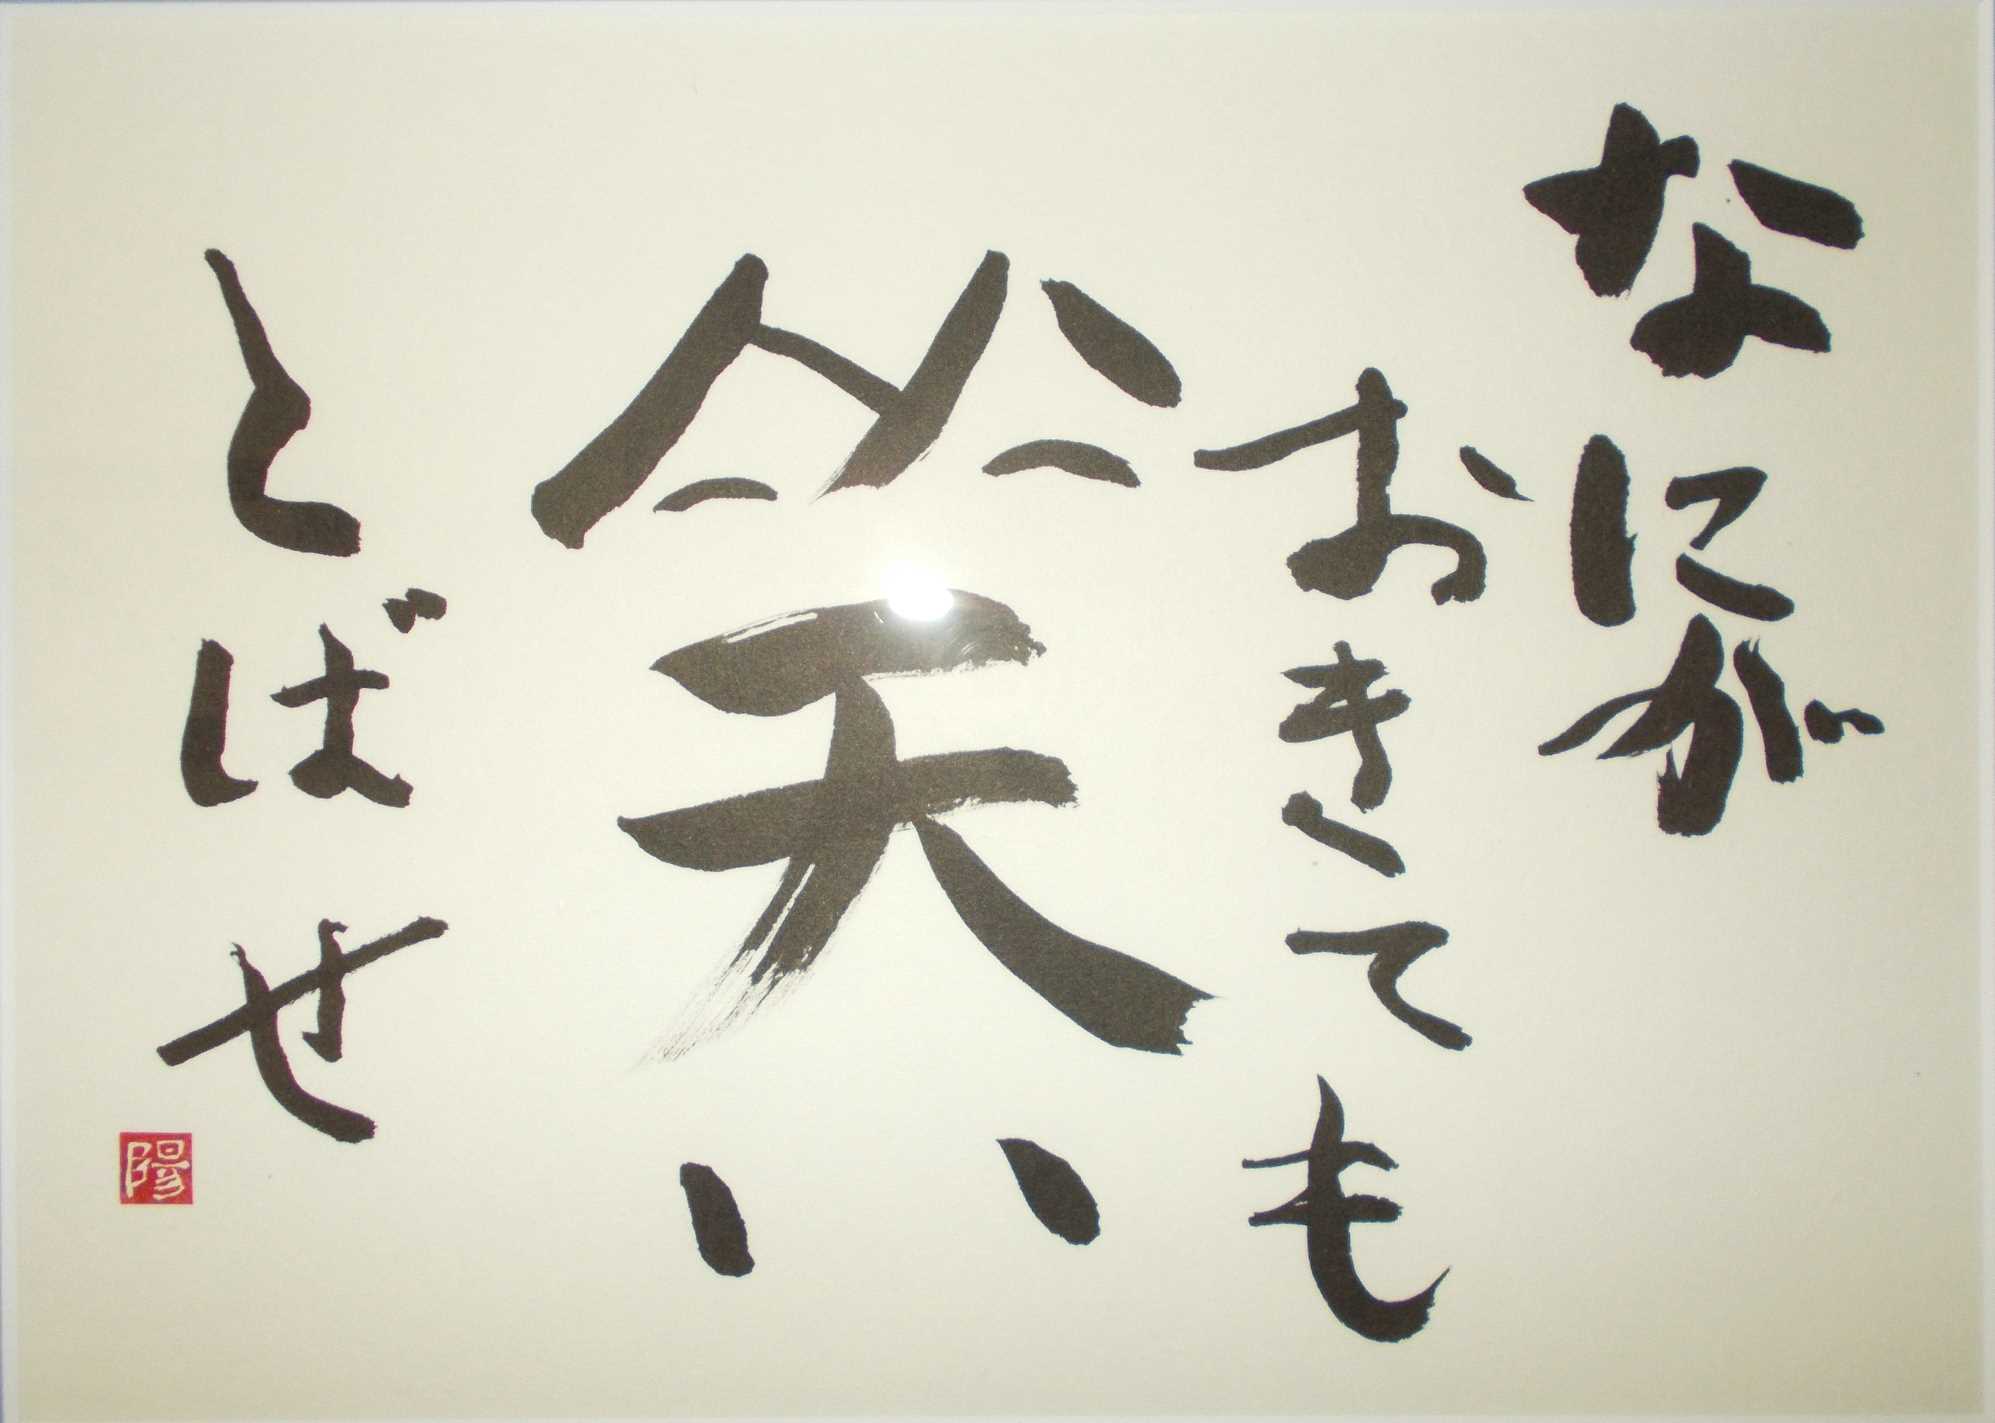 なにが
おきても
笑い
とばせ
陽